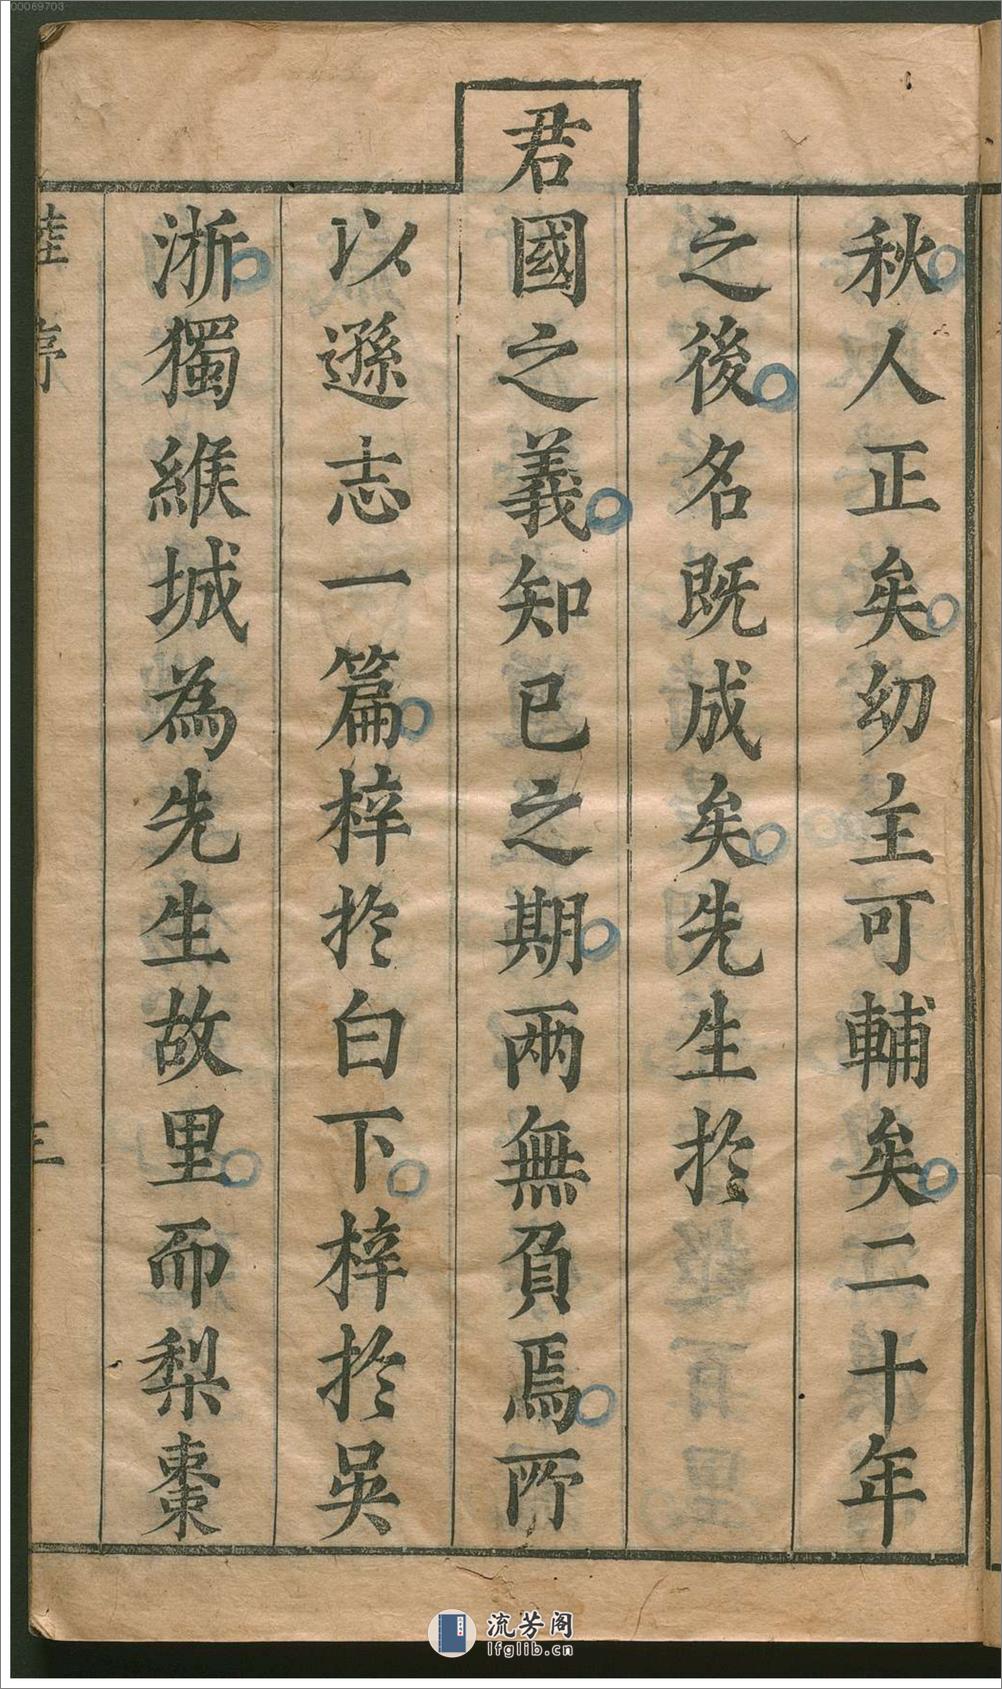 秋人正矣幼主可輔矣二十年
之後名既成矣先生於
君國之義知已之期兩無負焉所
以遜志一篇梓於白下梓於吳
浙獨緱城為先生故里而梨棗
序
三
00069703
流芳阁
lfglib.cn